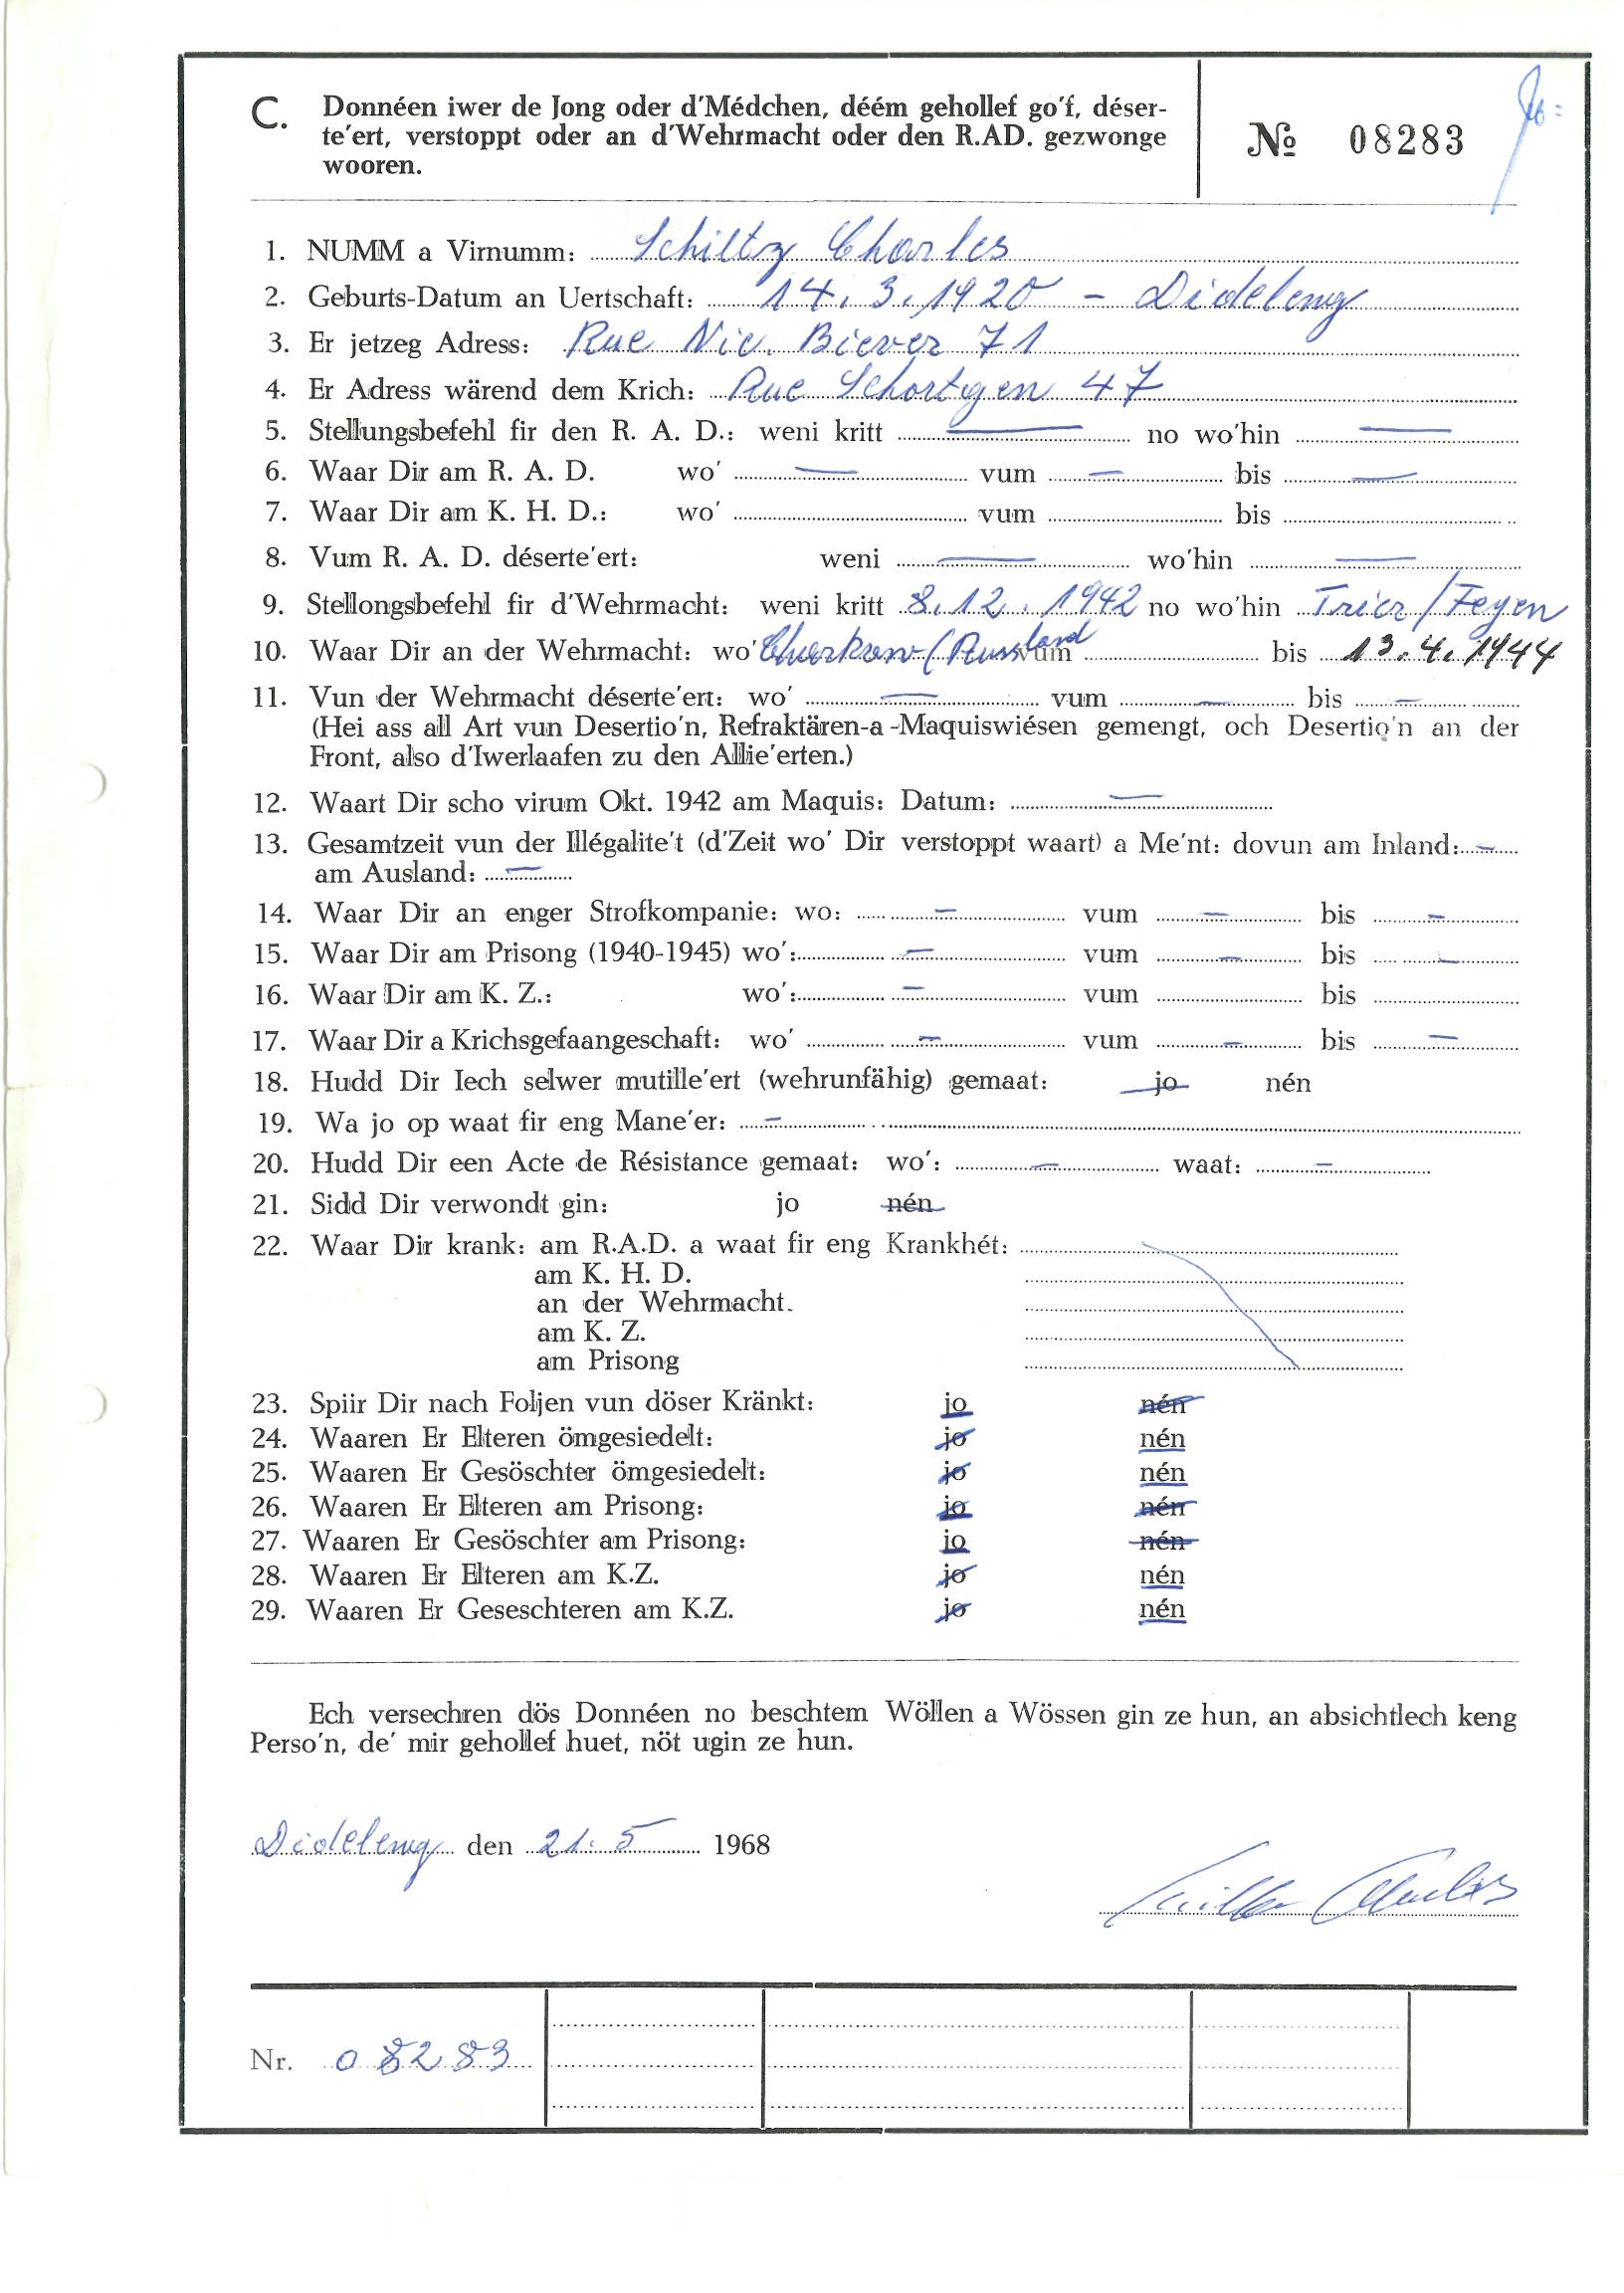 C. Donnéen iwer de Jong oder d'Médchen, déém gehollef go'f, déser-
te'ert, verstoppt oder an d'Wehrmacht oder den R.AD. gezwonge
wooren.
№ 08283
1. NUMM a Virnumm: Schiltz Charles
2. Geburts-Datum an Uertschaft: 14. 3. 1920 - Dideleng
3. Er jetzeg Adress: Rue Nic. Biever 71
4. Er Adress wärend dem Krich: Rue Schortgen 47
5. Stellungsbefehl fir den R. A. D.: weni kritt — no wo'hin —
6. Waar Dir am R. A. D. wo' — vum — bis —
7. Waar Dir am K. H. D.: wo' vum bis
8. Vum R. A. D. déserte'ert: weni — wo'hin —
9. Stellongsbefehl fir d'Wehrmacht: weni kritt 8. 12. 1942 no wo'hin Trier / Feyen
10. Waar Dir an der Wehrmacht: wo' Charkow (Russland vum bis 13. 4. 1944
11. Vun der Wehrmacht déserte'ert: wo' — vum — bis —
(Hei ass all Art vun Desertio'n, Refraktären-a -Maquiswiésen gemengt, och Desertio'n an der
Front, also d'Iwerlaafen zu den Allie'erten.)
12. Waart Dir scho virum Okt. 1942 am Maquis: Datum: —
13. Gesamtzeit vun der Illégalite't (d'Zeit wo' Dir verstoppt waart) a Me'nt: dovun am Inland: —
am Ausland: —
14. Waar Dir an enger Strofkompanie: wo: — vum — bis —
15. Waar Dir am Prisong (1940-1945) wo': — vum — bis —
16. Waar Dir am K. Z.: wo': — vum bis
17. Waar Dir a Krichsgefaangeschaft: wo' — vum — bis —
18. Hudd Dir Iech selwer mutille'ert (wehrunfähig) gemaat: jo nén
19. Wa jo op waat fir eng Mane'er: —
20. Hudd Dir een Acte de Résistance gemaat: wo': — waat: —
21. Sidd Dir verwondt gin: jo nén
22. Waar Dir krank: am R.A.D. a waat fir eng Krankhét:
am K. H. D.
an der Wehrmacht.
am K. Z.
am Prisong
23. Spiir Dir nach Foljen vun döser Kränkt: jo nén
24. Waaren Er Elteren ömgesiedelt: jo nén
25. Waaren Er Gesöschter ömgesiedelt: jo nén
26. Waaren Er Elteren am Prisong: jo nén
27. Waaren Er Gesöschter am Prisong: jo nén
28. Waaren Er Elteren am K.Z. jo nén
29. Waaren Er Geseschteren am K.Z. jo nén
Ech versechren dös Donnéen no beschtem Wöllen a Wössen gin ze hun, an absichtlech keng
Perso'n, de' mir gehollef huet, nöt ugin ze hun.
Dideleng den 21. 5 1968
Schiltz Charles
Nr. 08283